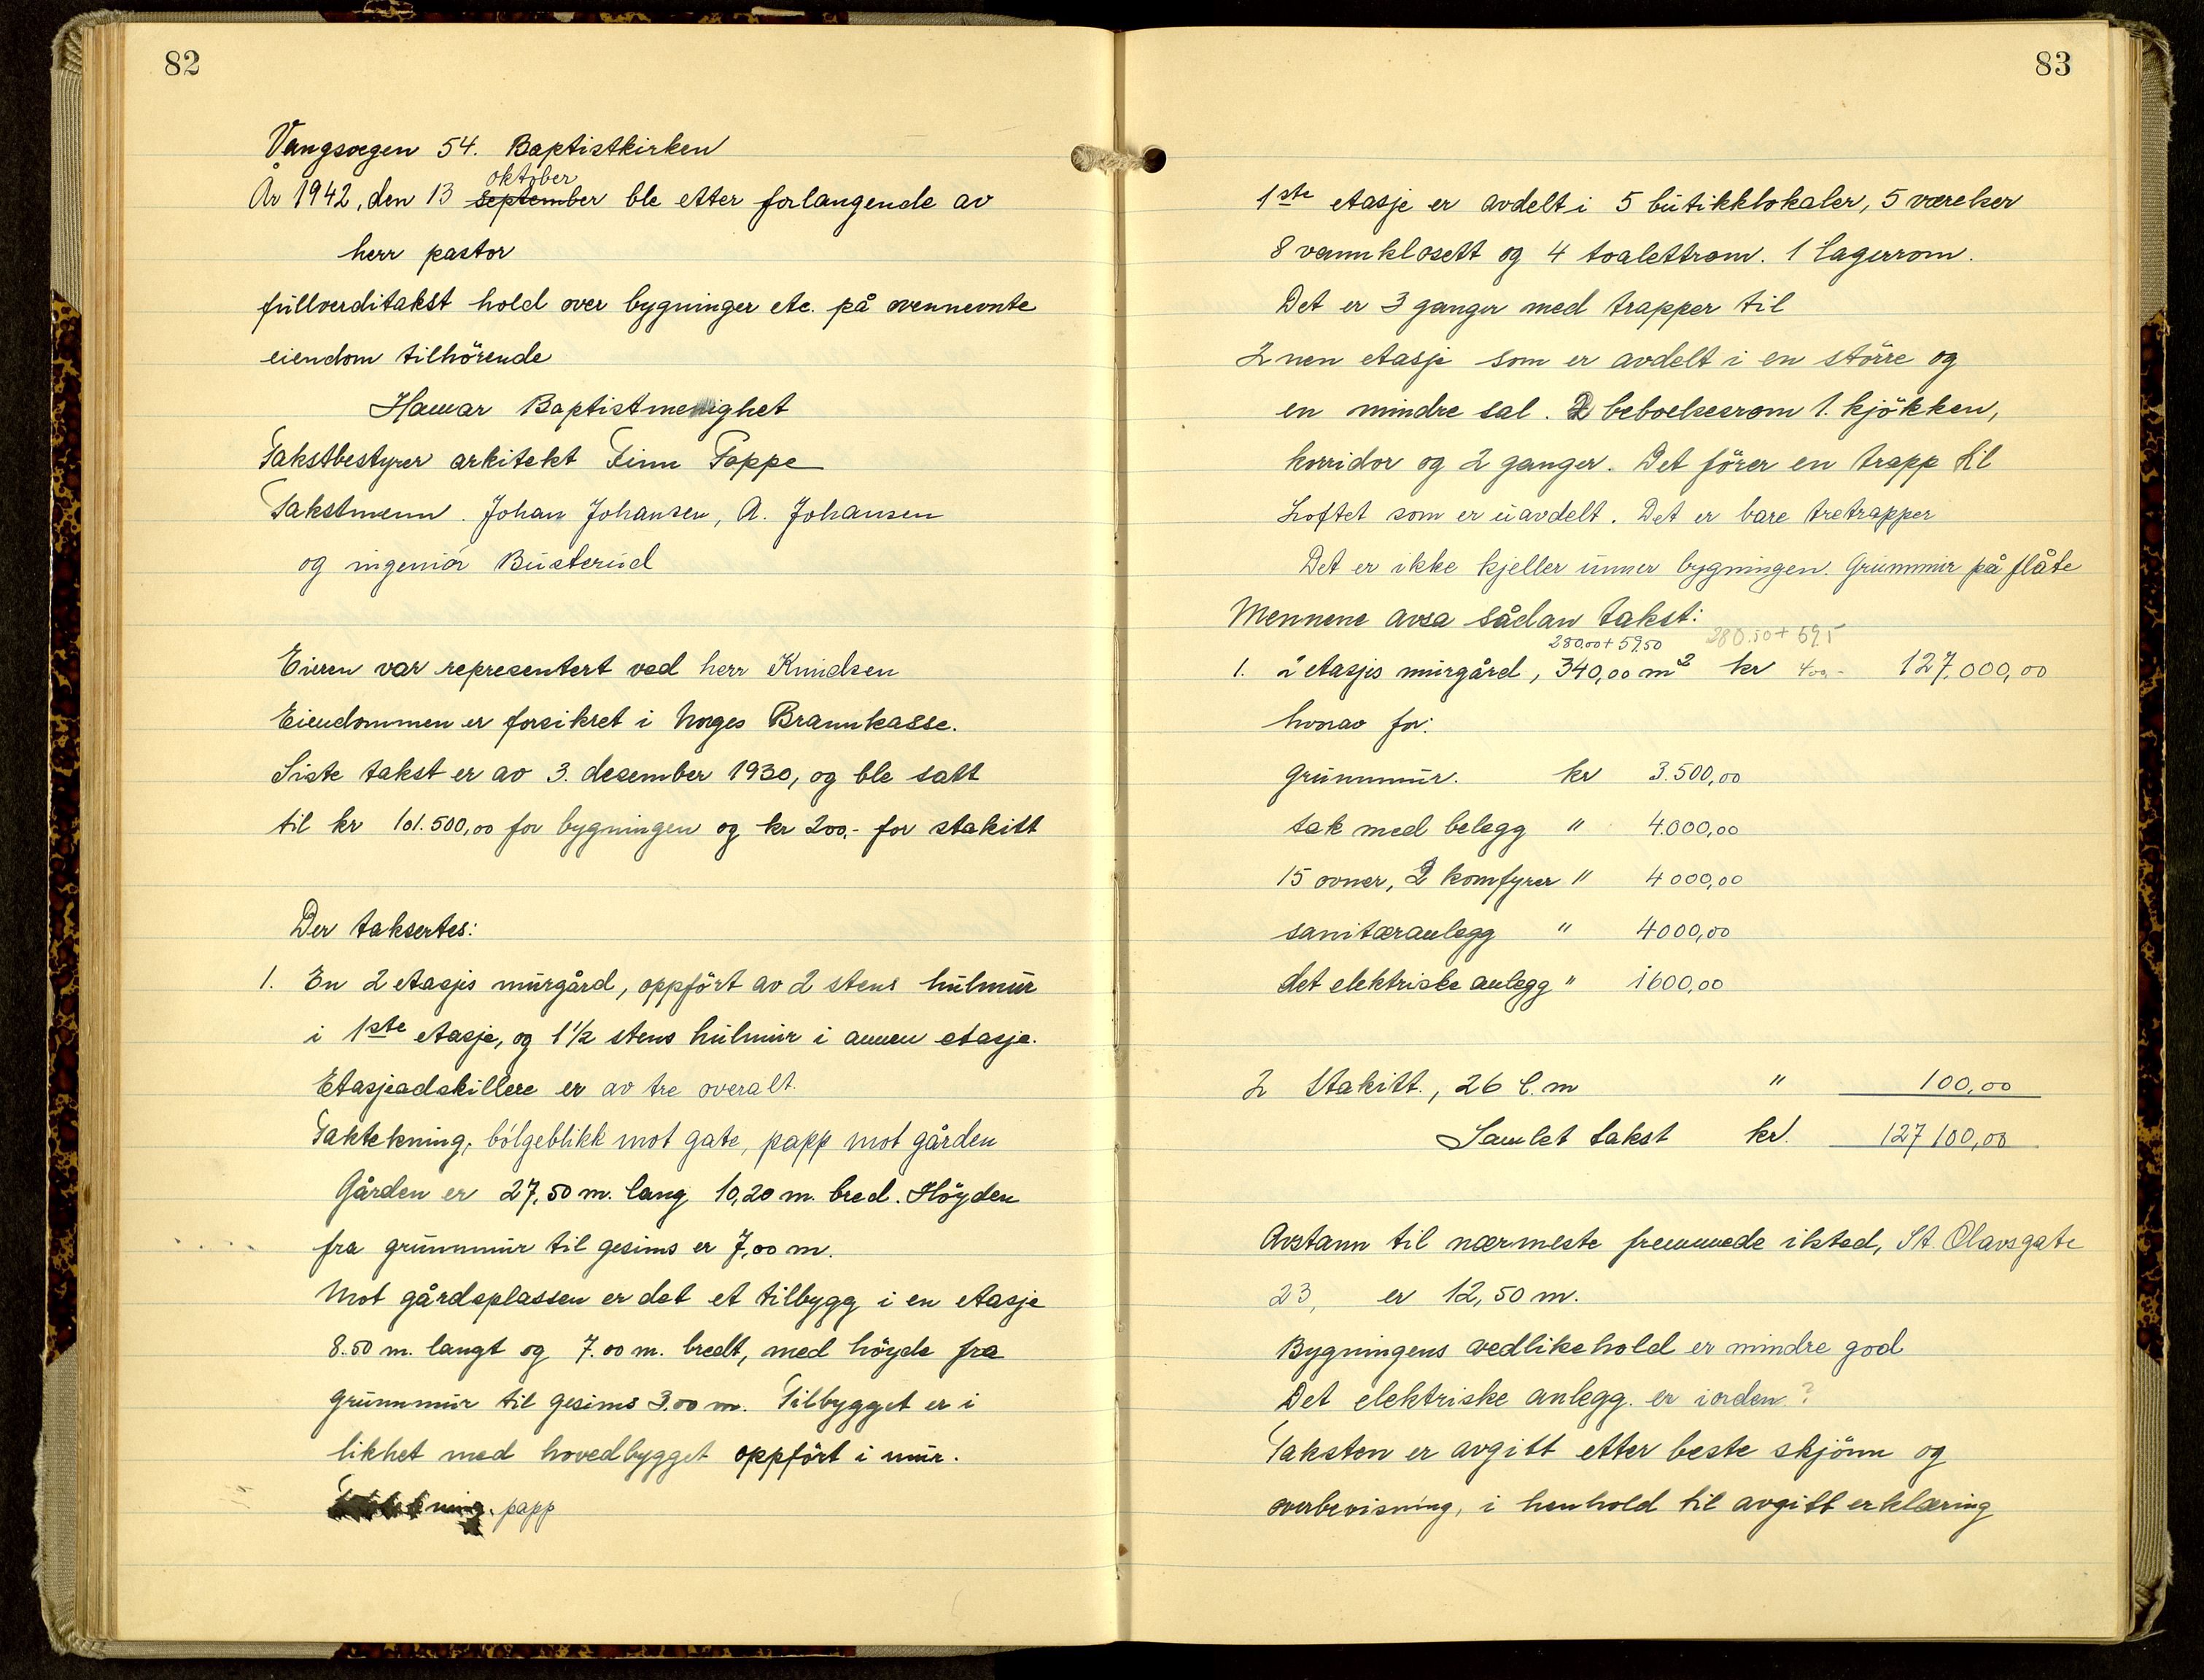 82
Vangsvegen 54. Baptistkirken
oktober
År 1942, den 13 september ble etter forlangende av
herr pastor
fullverditakst hold over bygninger etc. på ovennevnte
eiendom tilhörende
Hamar Baptistmenighet
Takstbestyrer arkitekt Finn Poppe
Takstmenn. Johan Johansen, A. Johansen
og ingeniör Busterud
Eieren var representert ved herr Knudsen
Eiendommen er forsikret i Norges Brannkasse.
Siste takst er av 3. desember 1930, og ble satt
til kr 101.500,00 for bygningen og kr 200,- for stakitt
Der taksertes:
1. En 2 etasjes murgård, oppfört av 2 stens hulmur
i 1ste etasje, og 1½ stens hulmur i annen etasje.
Etasjeadskillere er av tre overalt.
Taktekning, bölgeblikk mot gate, papp mot gården
Gården er 27,50 m. lang 10,20 m. bred. Höyden
fra grunnmur til gesims er 7,00 m.
Mot gårdsplassen er det et tilbygg i en etasje
8.50 m. langt og 7.00 m. bredt, med höyde fra
grunnmur til gesims 3.00 m. Tilbygget er i
likhet med hovedbygget oppfört i mur.
Taktekning. papp
83
1ste etasje er avdelt i 5 butikklokaler, 5 værelser
8 vannklosett og 4 toalettrom. 1 lagerrom.
Det er 3 ganger med trapper til
2nen etasje som er avdelt i en större og
en mindre sal. 2 beboelsesrom 1. kjökken,
korridor og 2 ganger. Det förer en trapp til
Loftet som er uavdelt. Det er bare tretrapper
Det er ikke kjeller unner bygningen. Grunnmur på flåte
Mennene avsa sådan takst:
280.00 + 59.50 280.50 + 59.5
1. 2 etasjes murgård, 340,00 m² kr 400,- 127,000,00
hvorav for:
grunnmur. kr 3.500,00
tak med belegg " 4.000,00
15 ovner, 2 komfyrer " 4000,00
sanitæranlegg " 4000,00
det elektriske anlegg " 1600,00
2 Stakitt., 26 l.m " 100,00
Samlet takst kr. 127100,00
Avstann til nærmeste fremmede ilsted, St. Olavsgate
23, er 12,50 m.
Bygningens vedlikehold er mindre god
Det elektriske anlegg. er iorden ?
Taksten er avgitt etter beste skjönn og
overbevisning, i henhold til avgitt erklæring